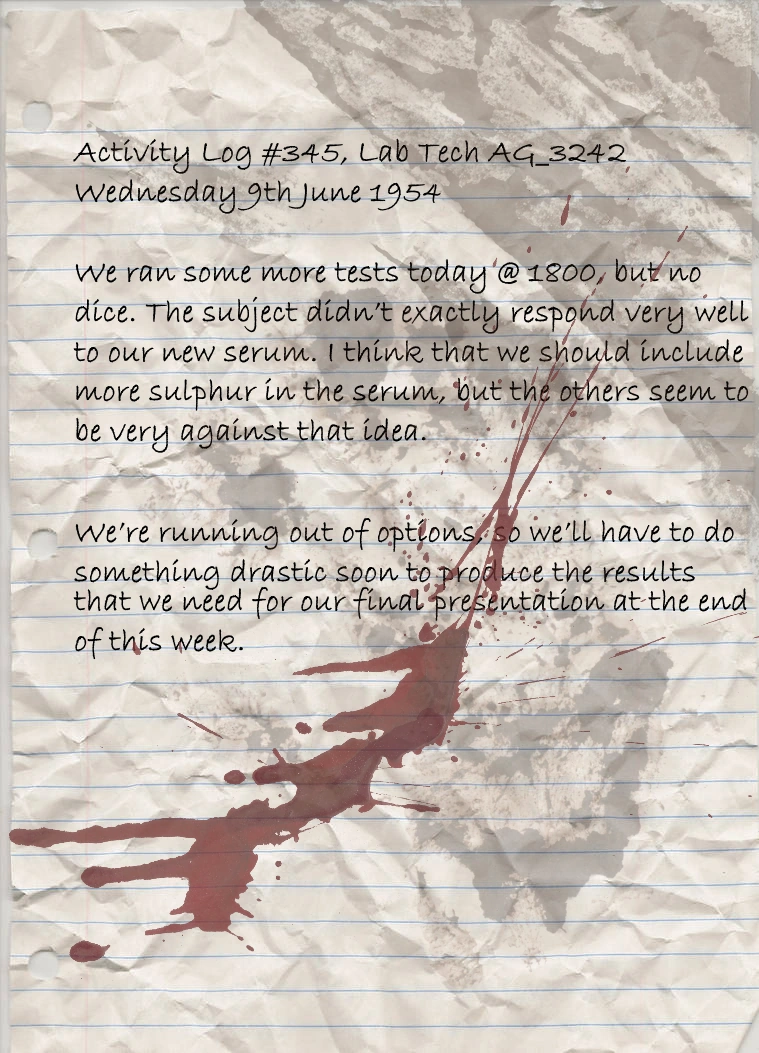 Activity Log #345, Lab Tech AG_3242
Wednesday 9th June 1954
We ran some more tests today @ 1800, but no
dice. The subject didn't exactly respond very well
to our new serum. I think that we should include
more sulphur in the serum, but the others seem to
be very against that idea.
We're running out of options, so we'll have to do
something drastic soon to produce the results
that we need for our final presentation at the end
of this week.